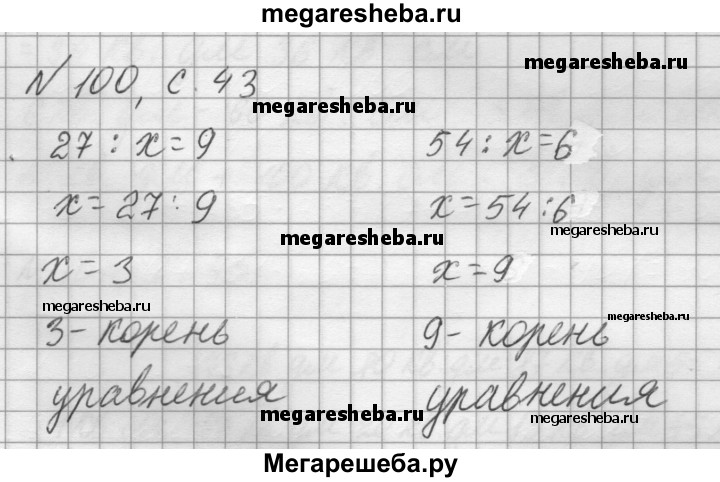 megaresheba.ru
№ 100, с. 43
megaresheba.ru
megaresheba.ru
27 : х = 9
х = 27 : 9
х = 3
3 - корень
уравнения
54 : х = 6
х = 54 : 6
х = 9
9 - корень
уравнения
megaresheba.ru
megaresheba.ru
megaresheba.ru
megaresheba.ru
megaresheba.ru
megaresheba.ru
Мегарешеба.ру